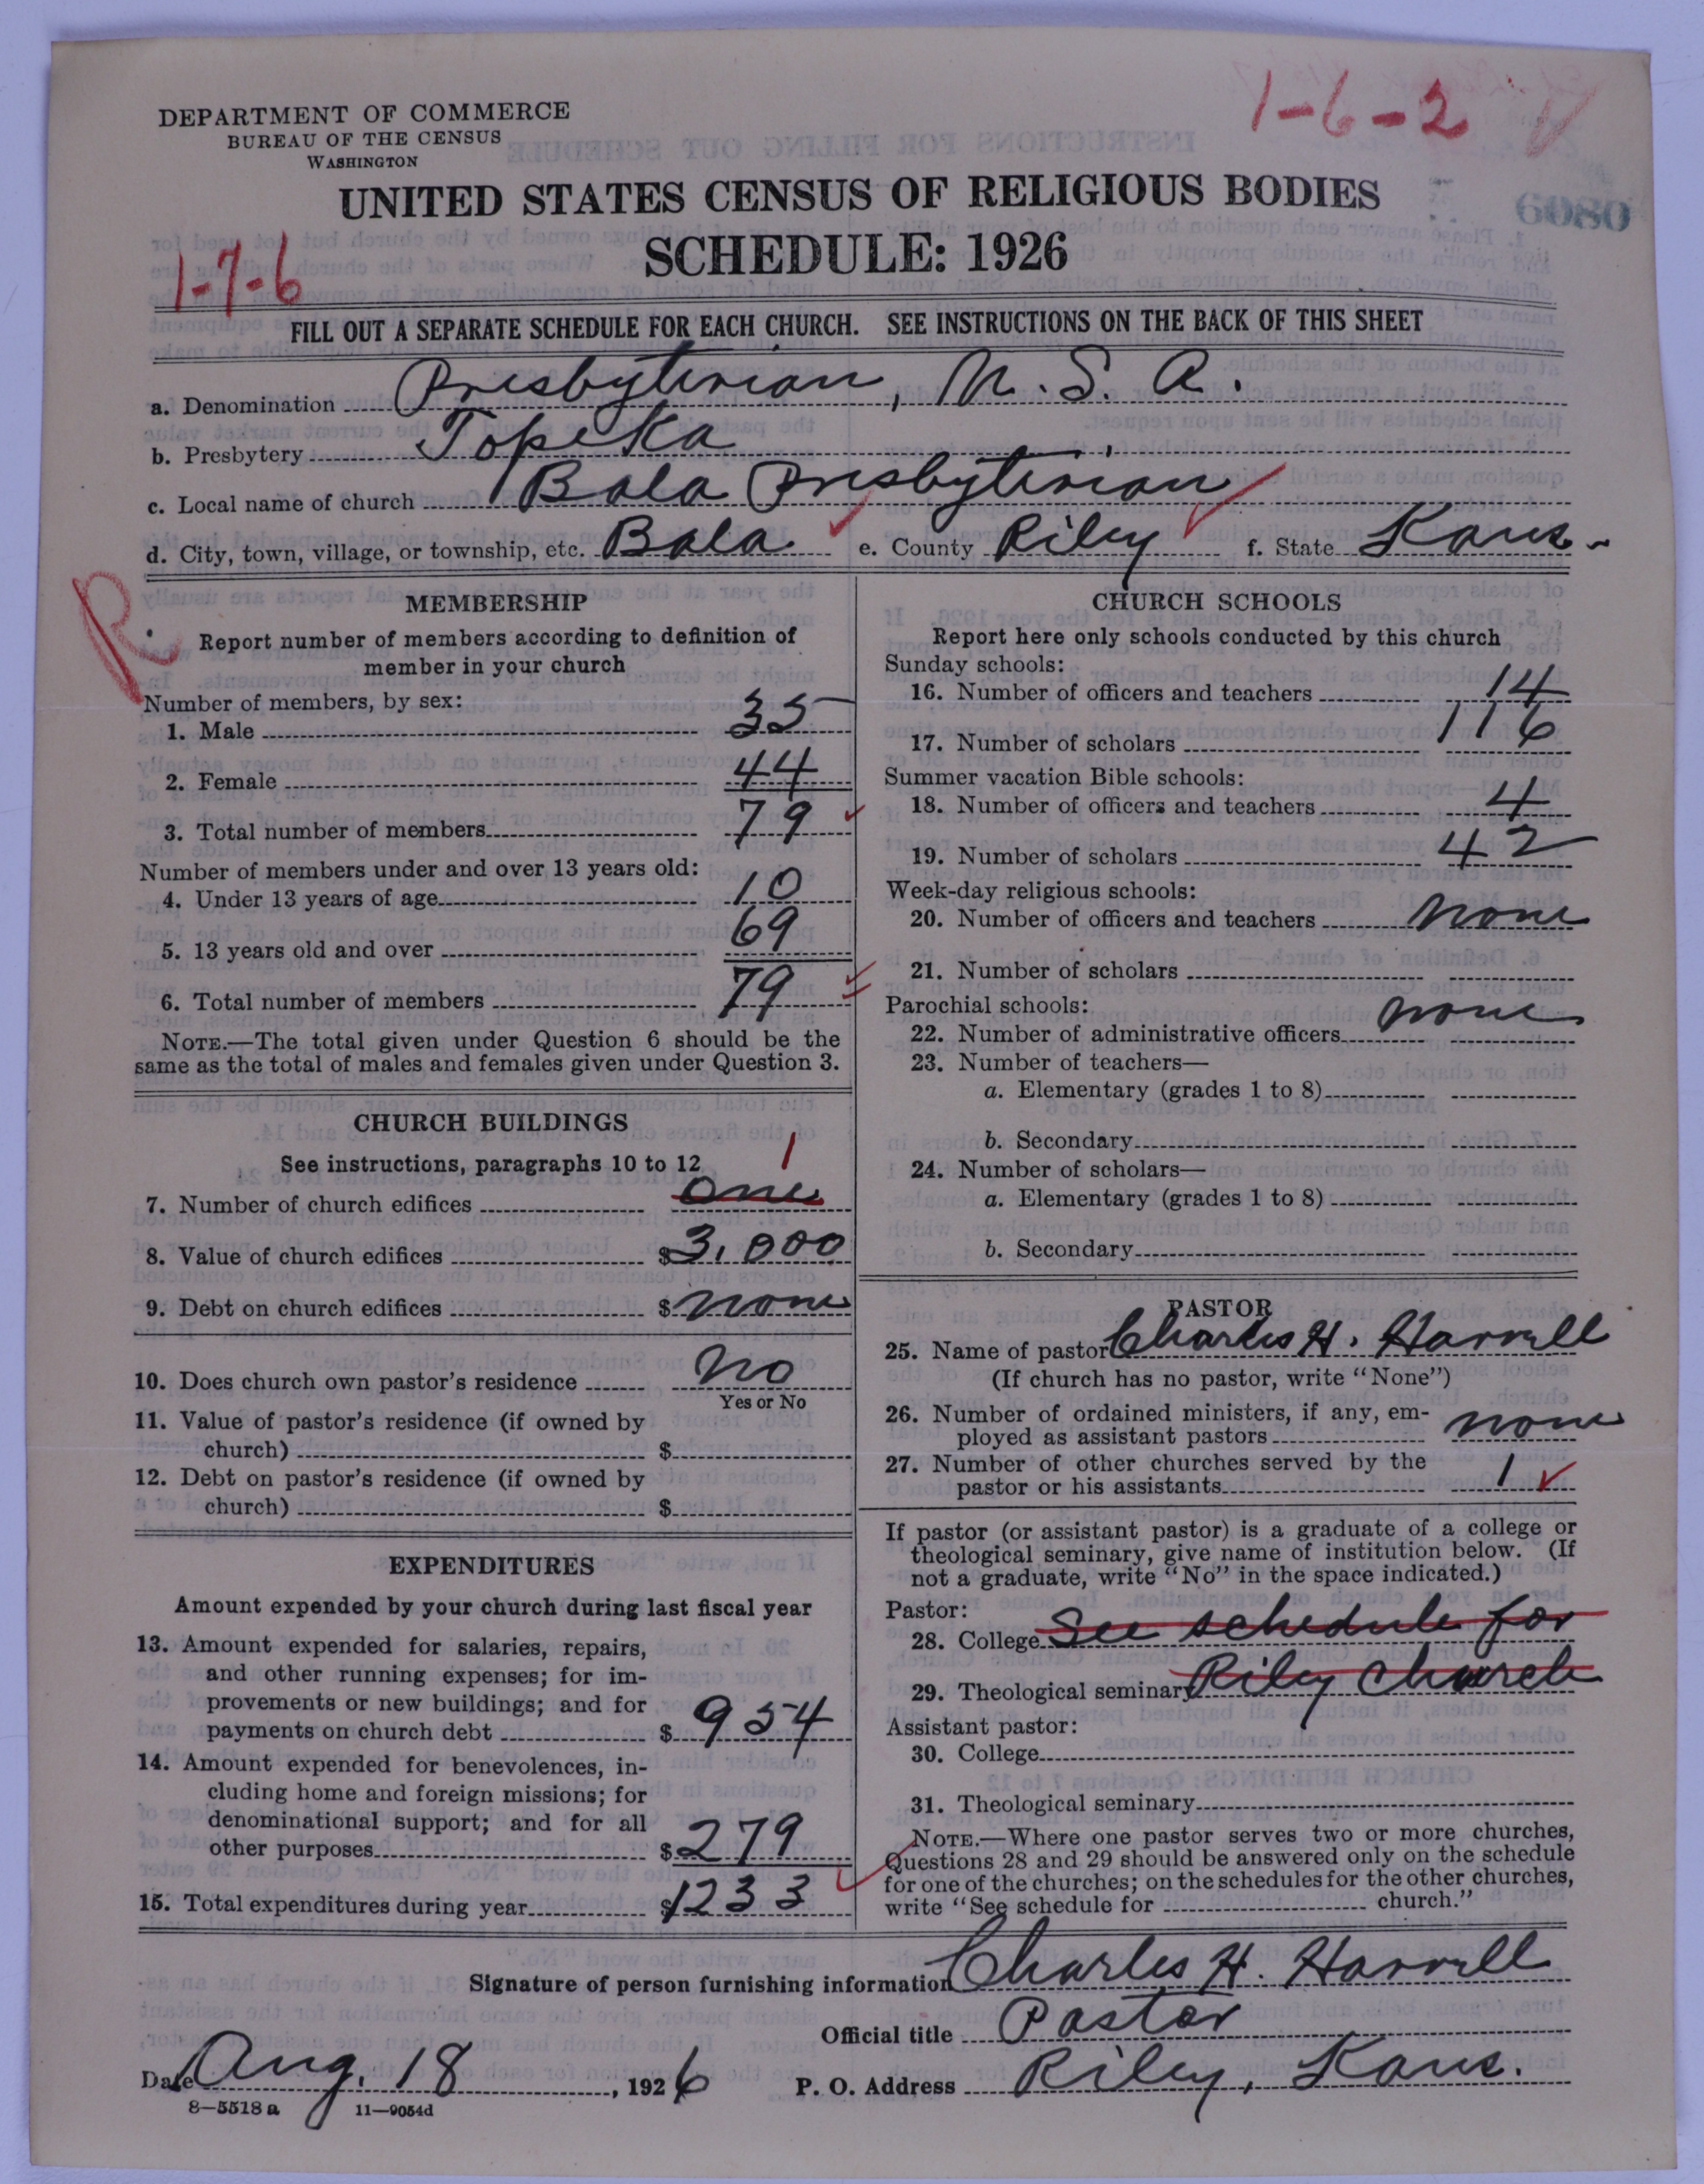 1-6-2
DEPARTMENT OF COMMERCE
BUREAU OF THE CENSUS
WASHINGTON
UNITED STATES CENSUS OF RELIGIOUS BODIES
6080
SCHEDULE: 1926
1-7-6
FILL OUT A SEPARATE SCHEDULE FOR EACH CHURCH. SEE INSTRUCTIONS ON THE BACK OF THIS SHEET
a. Denomination Presbyterian, U. S. A.
b. Presbytery Topeka
c. Local name of church Bala Presbyterian
d. City, town, village, or township, etc. Bala e. County Riley f. State Kans.
R
MEMBERSHIP
Report number of members according to definition of
member in your church
Number of members, by sex:
1. Male 35
2. Female 44
3. Total number of members 79
Number of members under and over 13 years old:
4. Under 13 years of age 10
5. 13 years old and over 69
6. Total number of members 79
NOTE.—The total given under Question 6 should be the
same as the total of males and females given under Question 3.
CHURCH BUILDINGS
See instructions, paragraphs 10 to 12
1
7. Number of church edifices one
8. Value of church edifices $3,000
9. Debt on church edifices $ none
10. Does church own pastor's residence No
Yes or No
11. Value of pastor's residence (if owned by
church) $
12. Debt on pastor's residence (if owned by
church) $
EXPENDITURES
Amount expended by your church during last fiscal year
13. Amount expended for salaries, repairs,
and other running expenses; for im-
provements or new buildings; and for
payments on church debt $ 954
14. Amount expended for benevolences, in-
cluding home and foreign missions; for
denominational support; and for all
other purposes $ 279
15. Total expenditures during year $1233
CHURCH SCHOOLS
Report here only schools conducted by this church
Sunday schools:
16. Number of officers and teachers 14
17. Number of scholars 116
Summer vacation Bible schools:
18. Number of officers and teachers 4
19. Number of scholars 42
Week-day religious schools:
20. Number of officers and teachers none
21. Number of scholars
Parochial schools:
22. Number of administrative officers none
23. Number of teachers—
a. Elementary (grades 1 to 8)
b. Secondary
24. Number of scholars—
a. Elementary (grades 1 to 8)
b. Secondary
PASTOR
25. Name of pastor Charles H. Harrell
(If church has no pastor, write "None")
26. Number of ordained ministers, if any, em-
ployed as assistant pastors none
27. Number of other churches served by the
pastor or his assistants 1
If pastor (or assistant pastor) is a graduate of a college or
theological seminary, give name of institution below. (If
not a graduate, write "No" in the space indicated.)
Pastor:
28. College See schedule for
29. Theological seminary Riley Church
Assistant pastor:
30. College
31. Theological seminary
NOTE.—Where one pastor serves two or more churches,
Questions 28 and 29 should be answered only on the schedule
for one of the churches; on the schedules for the other churches,
write "See schedule for church."
Signature of person furnishing information Charles H. Harrell
Official title Pastor
Date Aug. 18, 1926 P. O. Address Riley, Kans.
8—5518 a 11—9054d